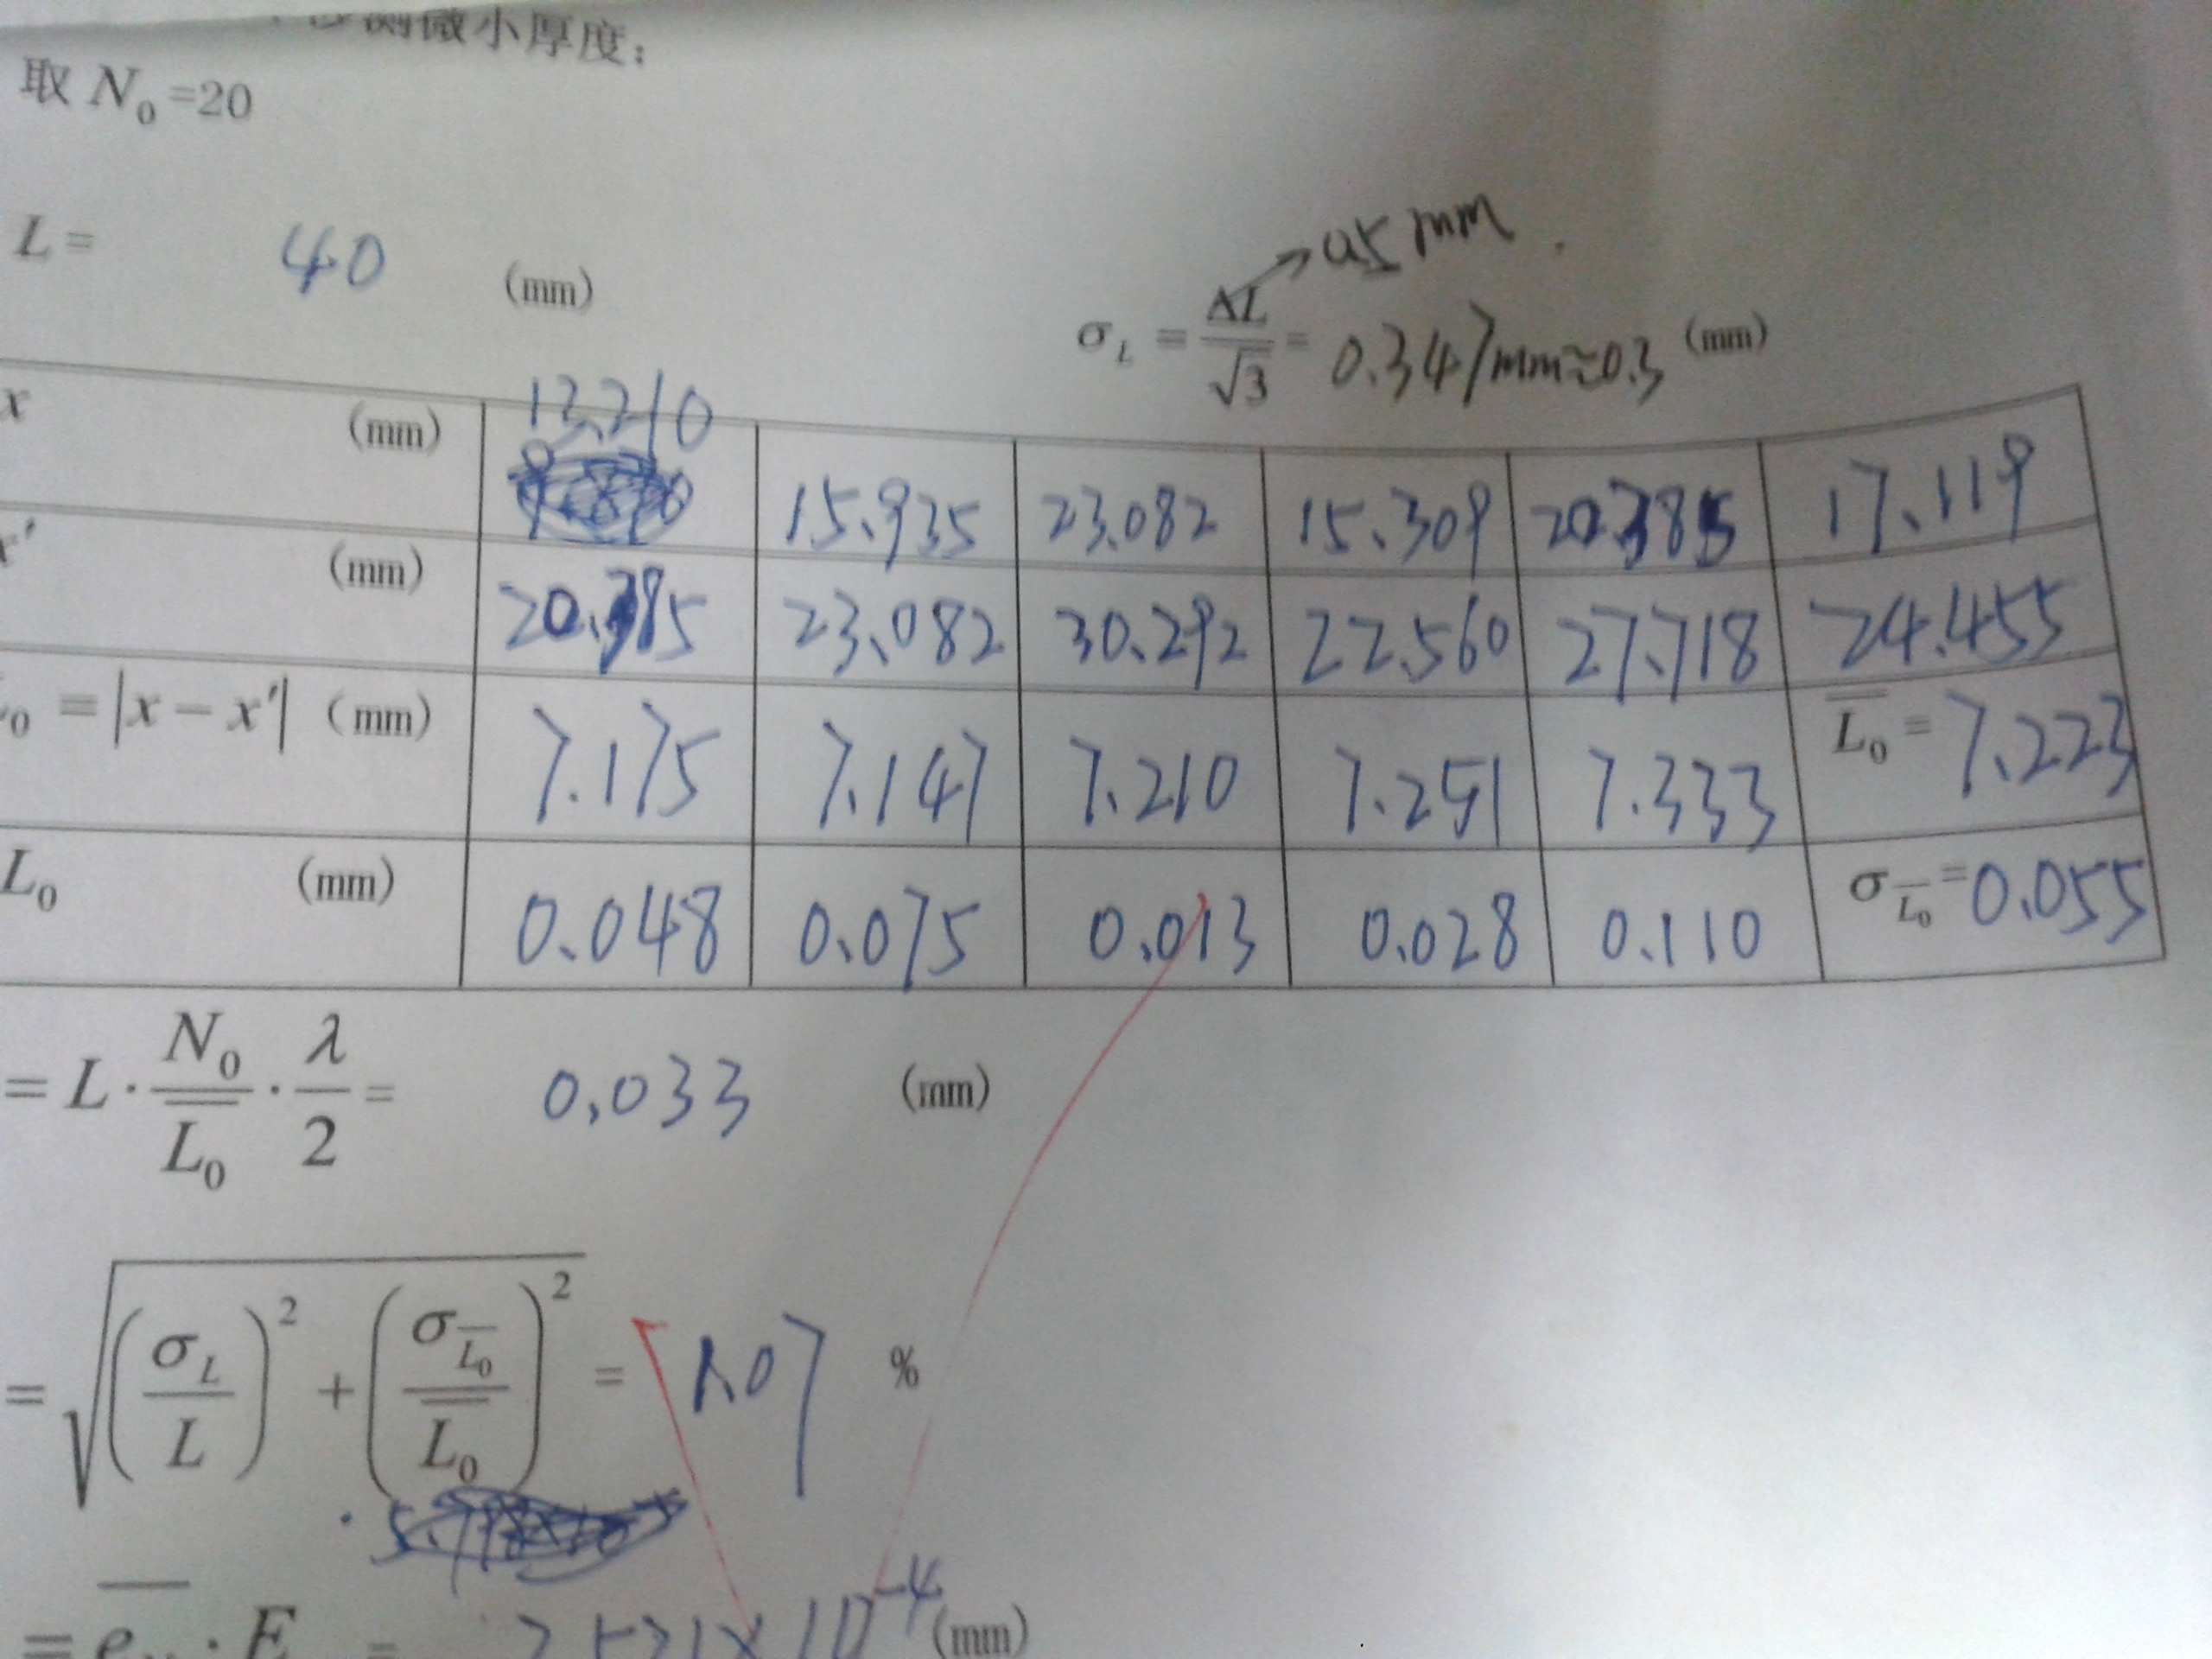 测微小厚度：
取 N₀ =20
0.5 mm
L = 40 (mm)
σ_L = ΔL/√3 = 0.347mm≈0.3 (mm)
x (mm) 13.210 15.935 23.082 15.309 20.385 17.119
x′ (mm) 20.385 23.082 30.292 22.560 27.718 24.455
₀ = |x − x′| (mm) 7.175 7.147 7.210 7.251 7.333 L̅₀ = 7.223
L₀ (mm) 0.048 0.075 0.013 0.028 0.110 σ_L̅₀ = 0.055
= L · N₀/L̅₀ · λ/2 = 0.033 (mm)
= √((σ_L/L)² + (σ_L̅₀/L̅₀)²) = 1.07 %
· E = × 10⁻⁴ (mm)